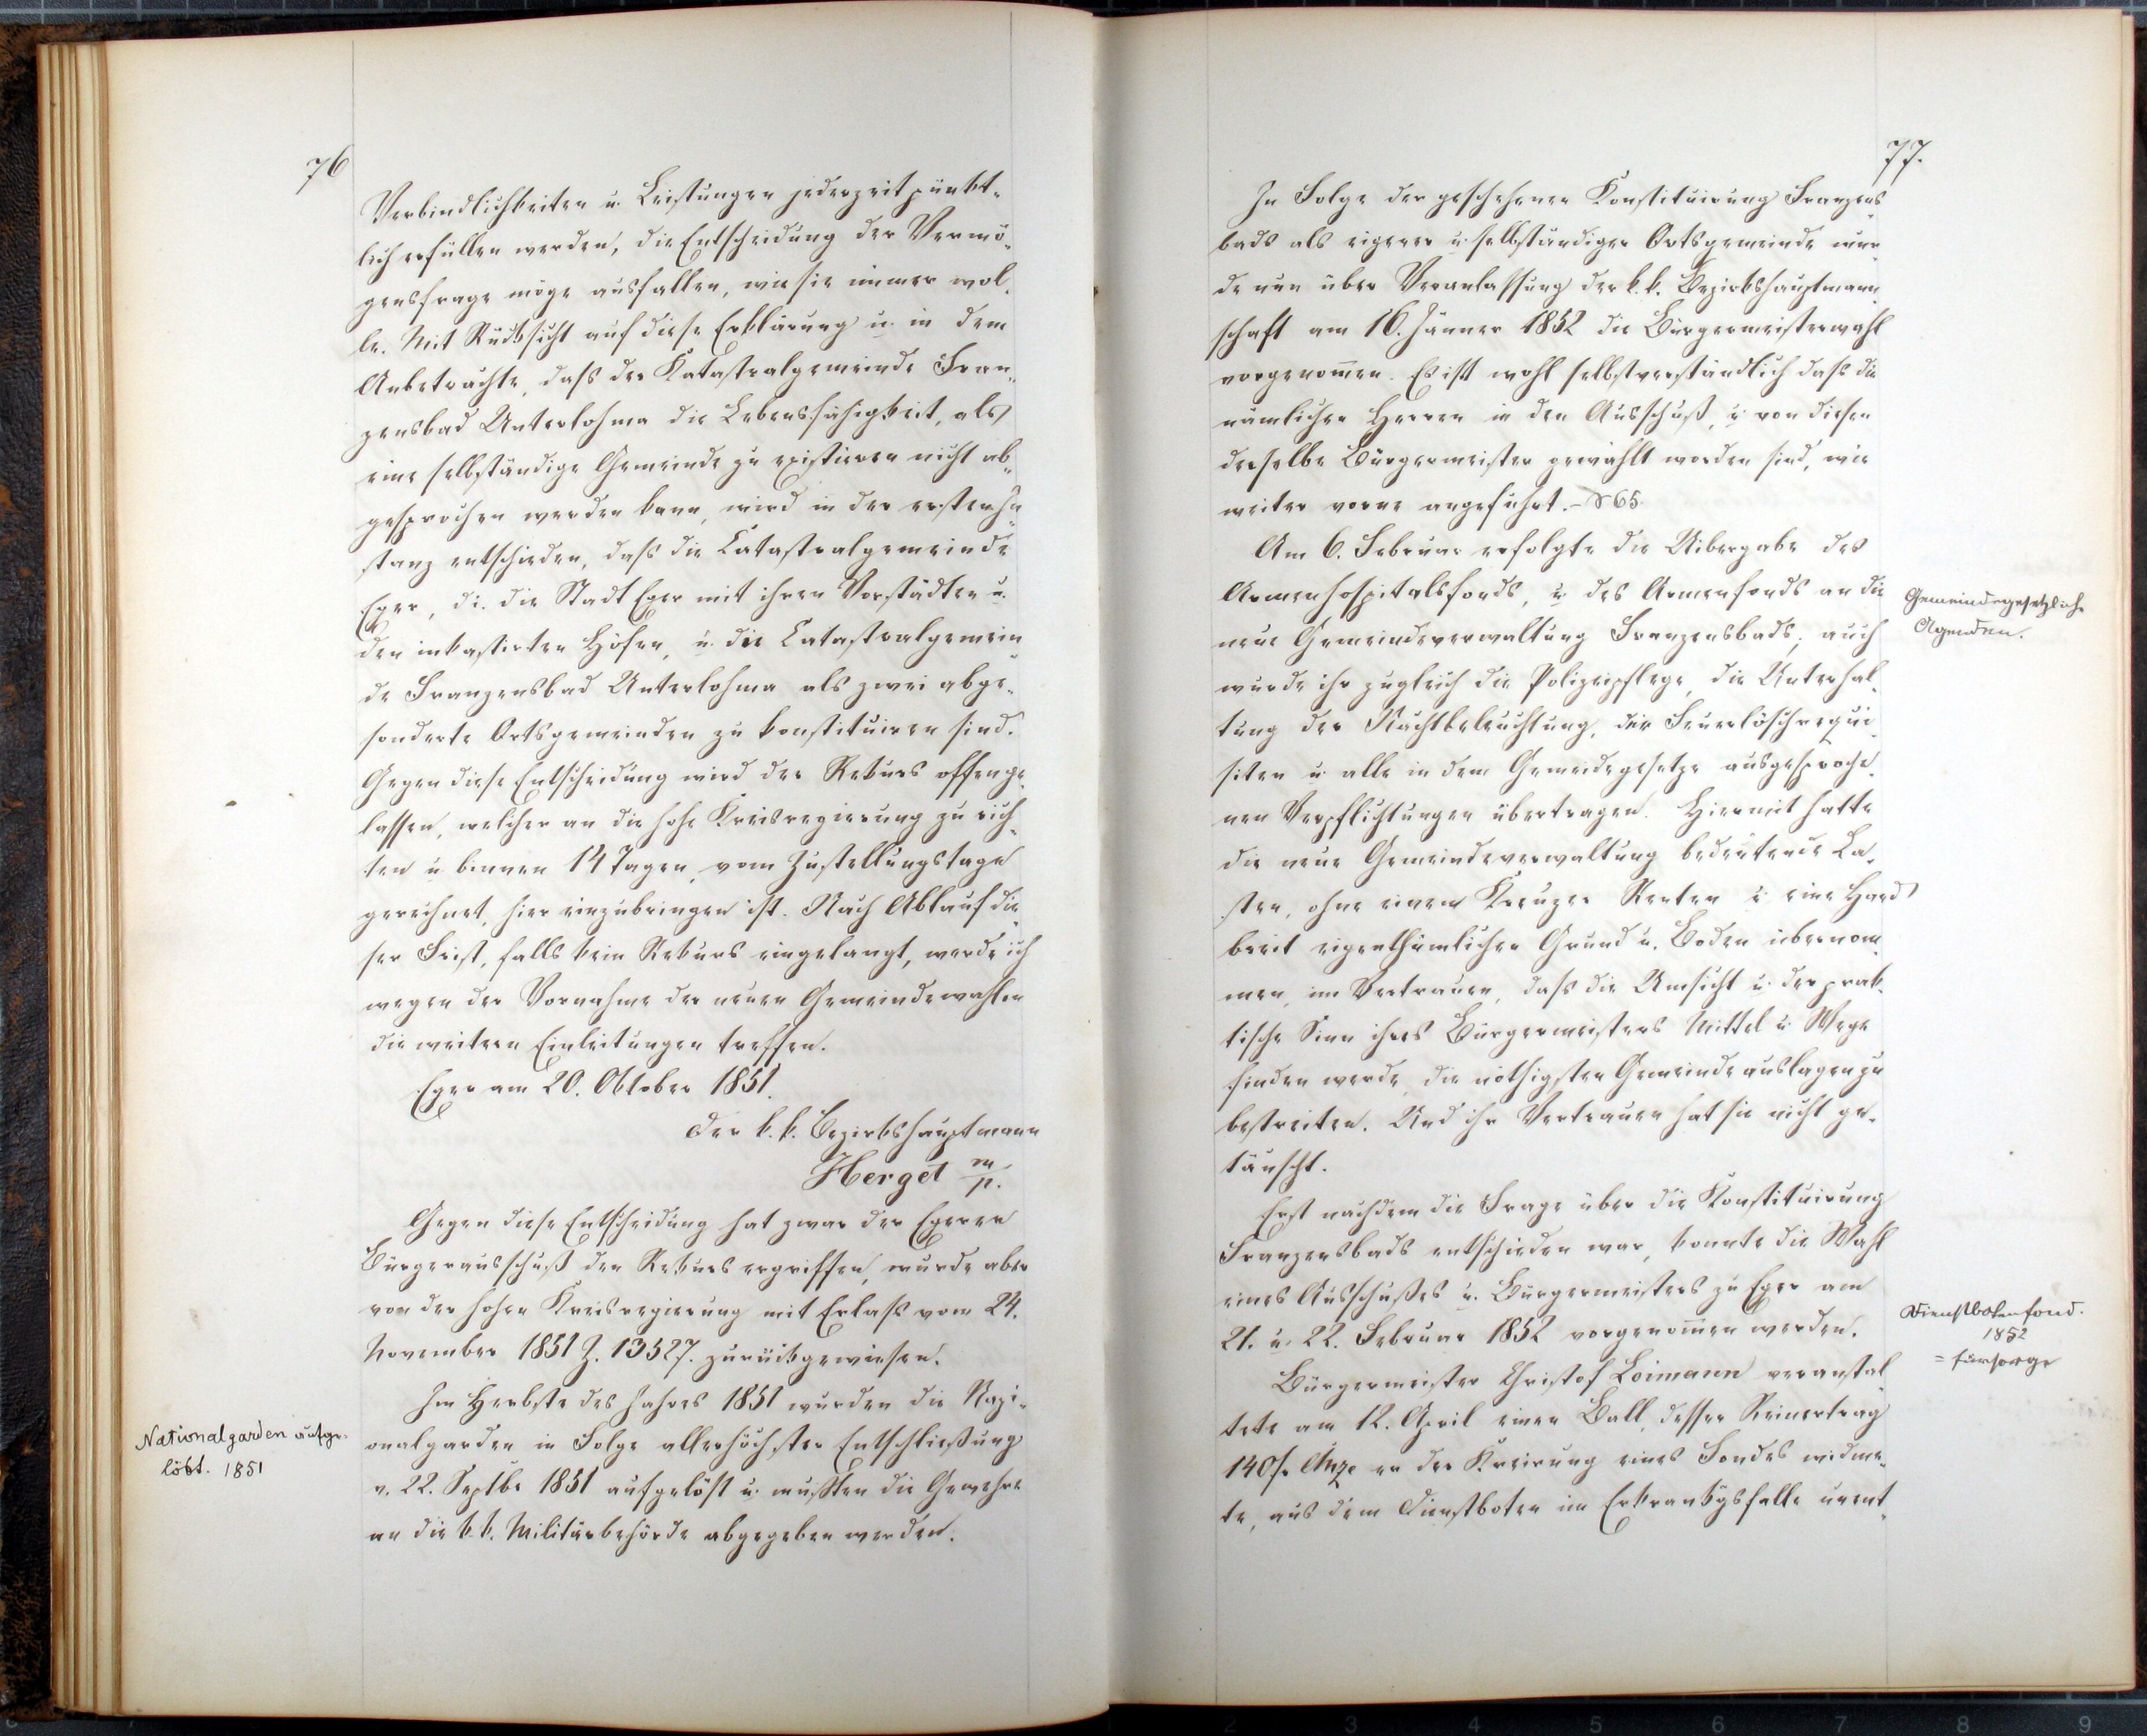 76
Verbindlichkeiten u. Leistungen jederzeit pünkt-
lich erfüllen werden, die Entscheidung der Vermö-
gensfrage möge ausfallen, wie sie immer wol-
le. Mit Rücksicht auf diese Erklärung u. in dem
Anbetrachte, daß der Katastralgemeinde Fran-
zensbad Unterlohma die Lebensfähigkeit, als
eine selbständige Gemeinde zu existieren nicht ab-
gesprochen werden kann, wird in der ersten In-
stanz entschieden, daß die Catastralgemeinde
Eger, d.i. die Stadt Eger mit ihren Vorstädten u.
den inkastirten Höfen, u. die Catastralgemein-
de Franzensbad Unterlohma als zwei abge-
sonderte Ortsgemeinden zu konstituiren sind.
Gegen diese Entscheidung wird der Rekurs offenge-
lassen, welcher an die hohe Kreisregierung zu rich-
ten u. binnen 14 Tagen, vom Zustellungstage
gerechnet, hier einzubringen ist. Nach Ablauf die-
ser Frist, falls kein Rekurs eingelangt, werde ich
wegen der Vornahme der neuen Gemeindewahlen
die weitern Einleitungen treffen.
Eger am 20. Oktober 1851.
Der k. k. Bezirkshauptmann
Herget m/p.
Gegen diese Entscheidung hat zwar der Egerer
Bürgerausschuß den Rekurs ergriffen, wurde aber
von der hohen Kreisregierung mit Erlaß vom 24.
November 1851 Z. 13527. zurückgewiesen.
Im Herbste des Jahres 1851 wurden die Nazi-
onalgarden in Folge allerhöchster Entschließung
v. 22. Septbr 1851 aufgelöst u. mußten die Gewehre
an die k.k. Militärbehörde abgegeben werden.
Nationalgarden aufge-
löst. 1851
77.
In Folge der geschehenen Konstituirung Franzens-
bads als eigener u. selbständiger Ortsgemeinde wur-
de nun über Veranlassung der k. k. Bezirkshauptmann-
schaft am 16. Jänner 1852 die Bürgermeisterwahl
vorgenom̄en. Es ist wohl selbstverständlich daß die
nämlichen Herren in den Ausschuß, u. von diesen
derselbe Bürgermeister gewählt worden sind, wie
weiter vorne angeführt. - S 65.
Am 6. Februar erfolgte die Uibergabe des
Armenhospitalsfonds, u. des Armenfonds an die
neue Gemeindeverwaltung Franzensbads; auch
wurde ihr zugleich die Polizeipflege, die Unterhal-
tung der Nachtbeleuchtung, der Feuerlöschrequi-
siten u. alle in dem Gemeindegesetze ausgesproche-
nen Verpflichtungen übertragen. Hiermit hatte
die neue Gemeindeverwaltung bedeutende La-
sten, ohne einen Kreuzer Renten u. eine Hand
breit eigenthümlichen Grund u. Boden übernom-
men, im Vertrauen, daß die Umsicht u. der prak-
tische Sinn ihres Bürgermeisters Mittel u. Wege
finden werde, die nöthigsten Gemeindeauslagen zu
bestreiten. Und ihr Vertrauen hat sie nicht ge-
täuscht.
Erst nachdem die Frage über die Konstituirung
Franzensbads entschieden war, konnte die Wahl
eines Ausschußes u. Bürgermeisters zu Eger am
21. u. 22. Februar 1852 vorgenom̄en werden.
Bürgermeister Christof Loimann veranstal-
tete am 12. April einen Ball, dessen Reinertrag
140 f. er der Kreirung eines Fondes widme-
te, aus dem Dienstboten im Erkrankgsfalle unent-
Gemeindegesetzliche
Agenden.
Dienstbotenfond.
1852
=fürsorge